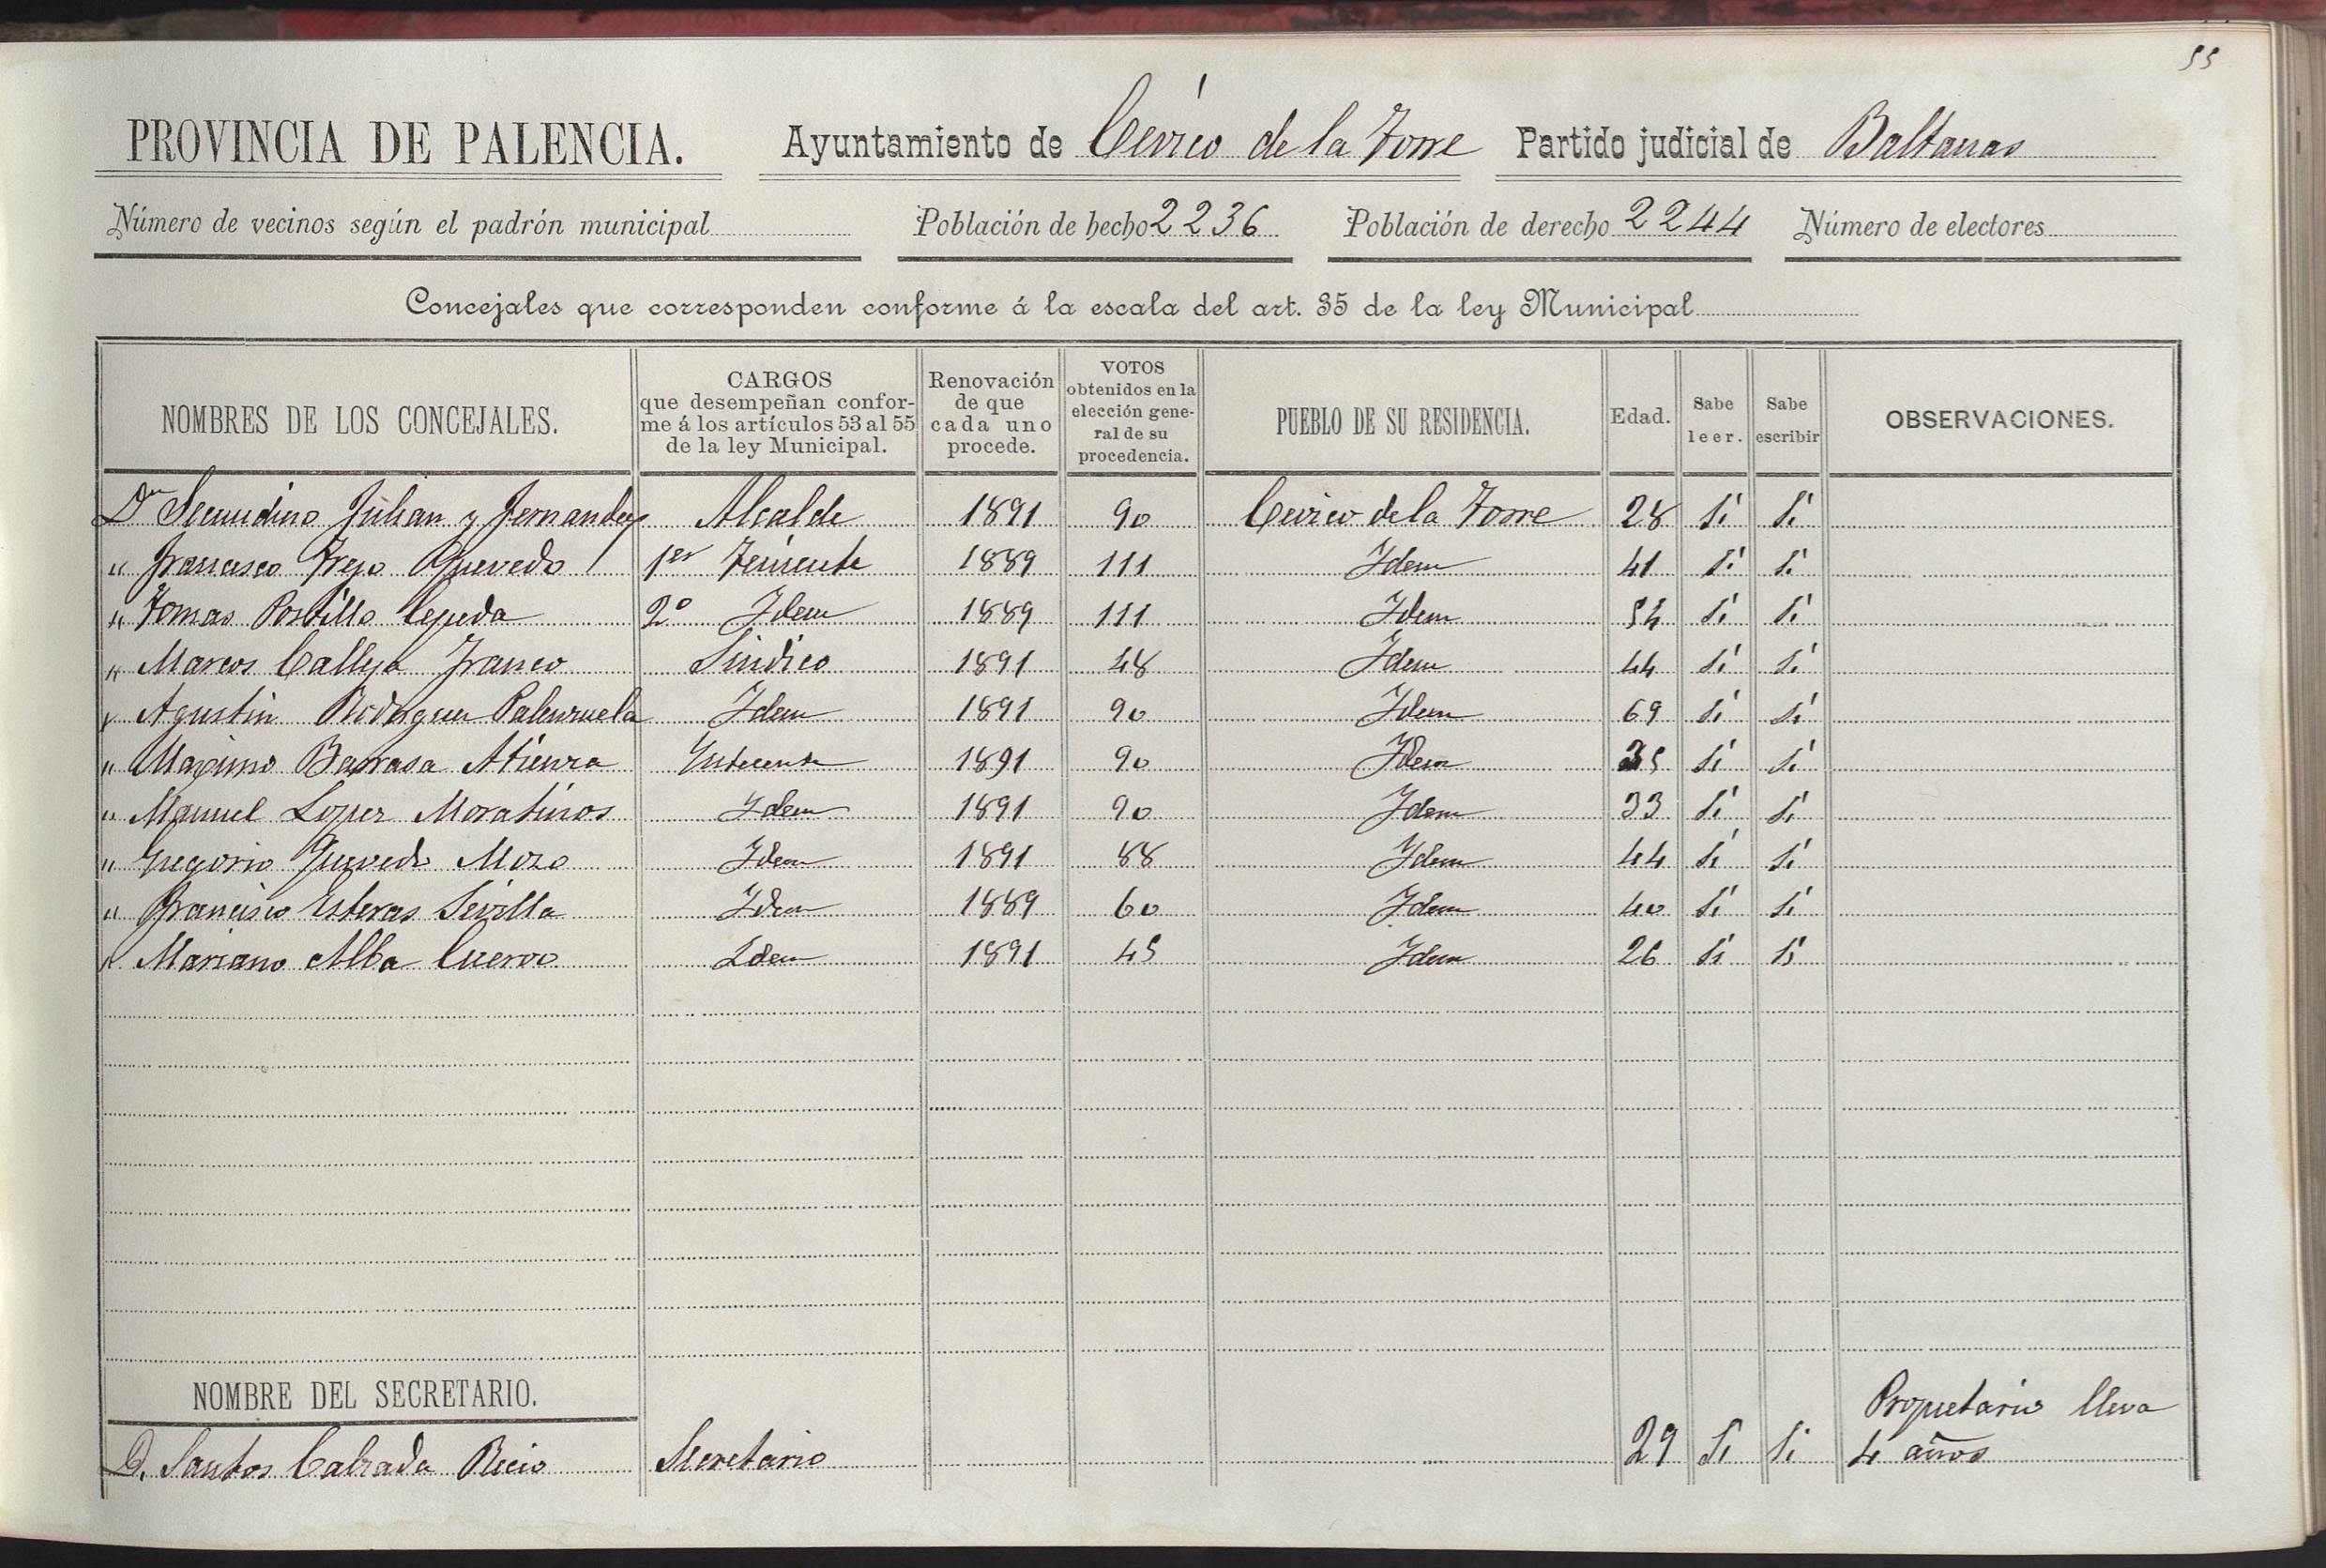 55
PROVINCIA DE PALENCIA. Ayuntamiento de Cevico de la Torre Partido judicial de Baltanas
Número de vecinos según el padrón municipal Población de hecho 2236 Población de derecho 2244 Número de electores
Concejales que corresponden conforme á la escala del art. 35 de la ley Municipal
NOMBRES DE LOS CONCEJALES.
CARGOS
que desempeñan confor-
me á los artículos 53 al 55
de la ley Municipal.
Renovación
de que
cada uno
procede.
VOTOS
obtenidos en la
elección gene-
ral de su
procedencia.
PUEBLO DE SU RESIDENCIA.
Edad.
Sabe
leer.
Sabe
escribir
OBSERVACIONES.
Dn Secundino Julian y Fernandez Alcalde 1891 90 Cevico de la Torre 28 Si Si
" Francisco Trejo Quevedo 1er Teniente 1889 111 Idem 41 Si Si
" Tomas Portillo Cepeda 2º Idem 1889 111 Idem 54 Si Si
" Marcos Calleja Franco Sindico 1891 48 Idem 44 Si Si
" Agustin Rodriguez Palenzuela Idem 1891 90 Idem 69 Si Si
" Maximo Barrasa Atienza 1891 90 Idem 35 Si Si
" Manuel Lopez Moratinos Idem 1891 90 Idem 33 Si Si
" Gregorio Quevedo Mozo Idem 1891 88 Idem 44 Si Si
" Francisco Esteras Sevilla Idem 1889 60 Idem 40 Si Si
" Mariano Alba Cuervo Idem 1891 45 Idem 26 Si Si
NOMBRE DEL SECRETARIO.
D. Santos Calzada Recio Secretario 29 Si Si Propietario lleva
4 años